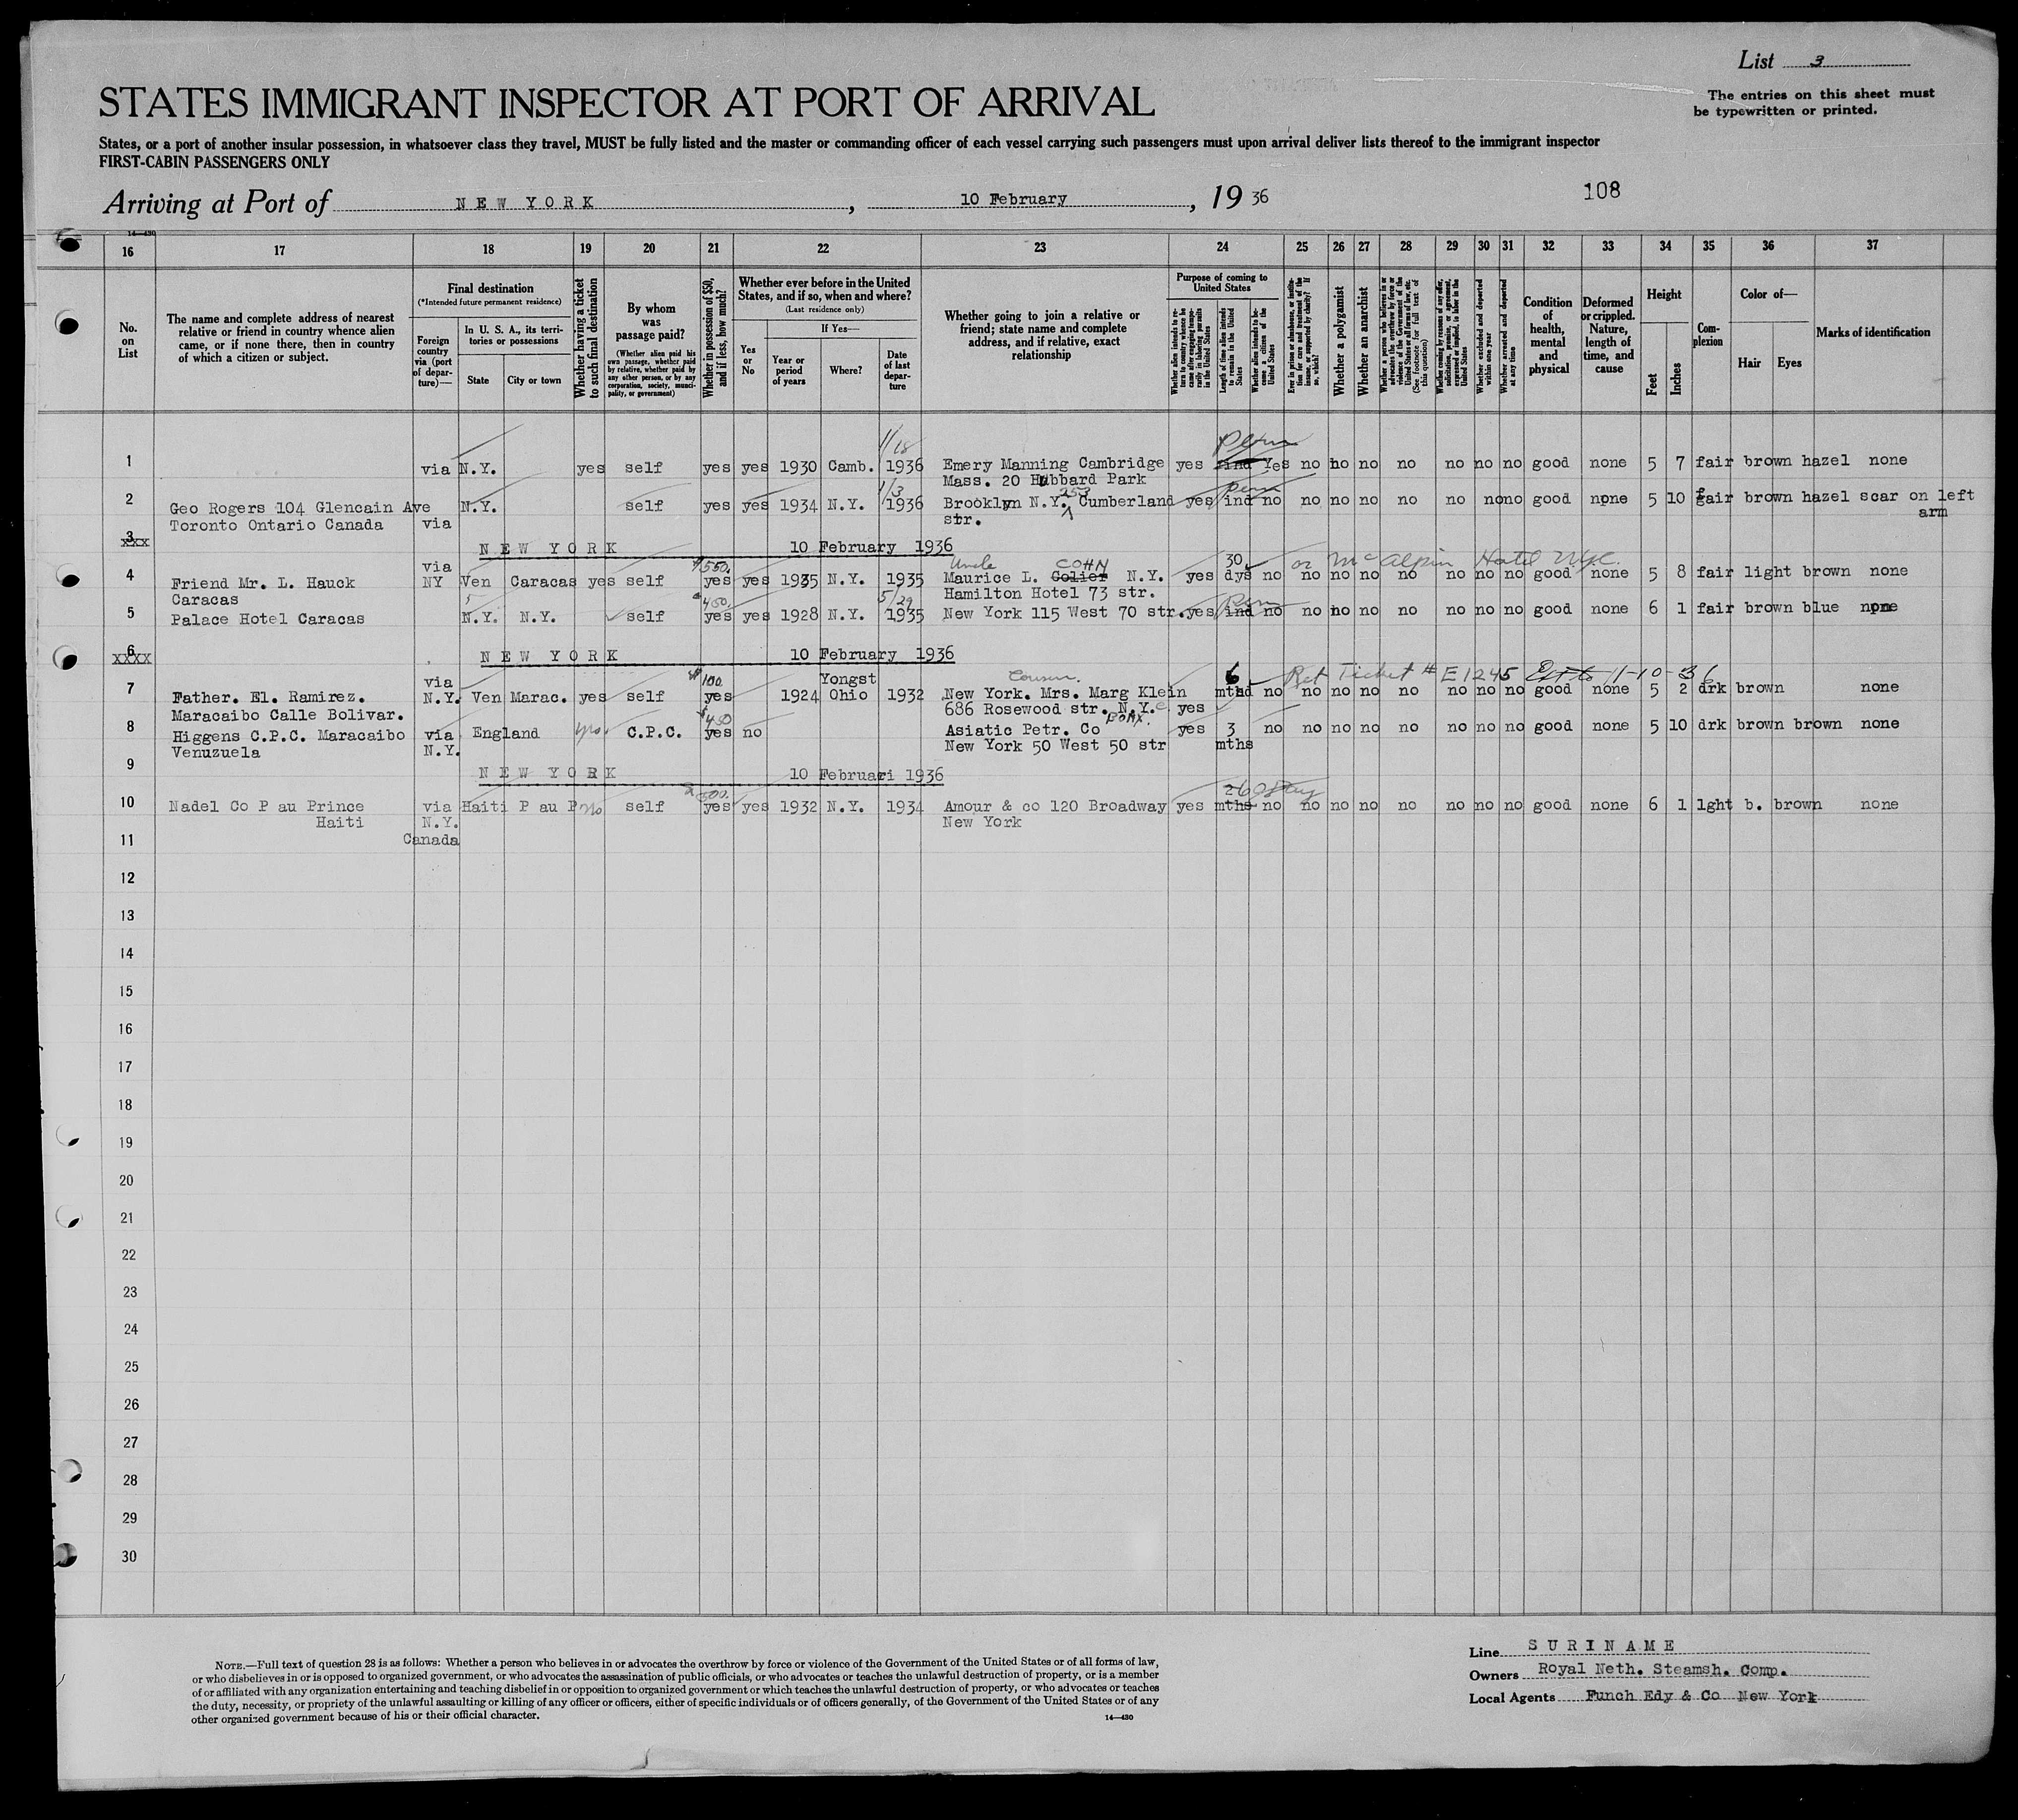 List 3
STATES IMMIGRANT INSPECTOR AT PORT OF ARRIVAL
The entries on this sheet must
be typewritten or printed.
States, or a port of another insular possession, in whatsoever class they travel, MUST be fully listed and the master or commanding officer of each vessel carrying such passengers must upon arrival deliver lists thereof to the immigrant inspector
FIRST-CABIN PASSENGERS ONLY
Arriving at Port of NEW YORK, 10 February, 1936
108
14—430
16 17 18 19 20 21 22 23 24 25 26 27 28 29 30 31 32 33 34 35 36 37
No. on List
The name and complete address of nearest relative or friend in country whence alien came, or if none there, then in country of which a citizen or subject.
Final destination
(*Intended future permanent residence)
Foreign country via (port of departure)—
In U. S. A., its territories or possessions
State
City or town
Whether having a ticket to such final destination
By whom was passage paid?
(Whether alien paid his own passage, whether paid by relative, whether paid by any other person, or by any corporation, society, municipality, or government)
Whether in possession of $50, and if less, how much?
Whether ever before in the United States, and if so, when and where?
(Last residence only)
Yes or No
If Yes—
Year or period of years
Where?
Date of last departure
Whether going to join a relative or friend; state name and complete address, and if relative, exact relationship
Purpose of coming to United States
Whether alien intends to return to country whence he came after engaging temporarily in laboring pursuits in the United States
Length of time alien intends to remain in the United States
Whether alien intends to become a citizen of the United States
Ever in prison or almshouse, or institution for care and treatment of the insane, or supported by charity? If so, which?
Whether a polygamist
Whether an anarchist
Whether a person who believes in or advocates the overthrow by force or violence of the Government of the United States or all forms of law, etc. (See footnote for full text of this question)
Whether coming by reasons of any offer, solicitation, promise, or agreement, expressed or implied, to labor in the United States
Whether excluded and deported within one year
Whether arrested and deported at any time
Condition of health, mental and physical
Deformed or crippled. Nature, length of time, and cause
Height
Feet
Inches
Complexion
Color of—
Hair
Eyes
Marks of identification
1/18 Perm
1 via N.Y. yes self yes yes 1930 Camb. 1936 Emery Manning Cambridge yes ind Yes no no no no no no no good none 5 7 fair brown hazel none
Mass. 20 Hubbard Park
1/3 253 Perm
2 Geo Rogers 104 Glencain Ave N.Y. self yes yes 1934 N.Y. 1936 Brooklyn N.Y. Cumberland yes ind no no no no no no no no good none 5 10 fair brown hazel scar on left
Toronto Ontario Canada via str. arm
3 xxx NEW YORK 10 February 1936
via $550. Uncle COHN 30 or McAlpin Hotel NYC.
4 Friend Mr. L. Hauck NY Ven Caracas yes self yes yes 1935 N.Y. 1935 Maurice L. Colier N.Y. yes dys no no no no no no no no good none 5 8 fair light brown none
Caracas Hamilton Hotel 73 str.
$450. 5/29 Perm
5 Palace Hotel Caracas N.Y. N.Y. self yes yes 1928 N.Y. 1935 New York 115 West 70 str. yes ind no no no no no no no no good none 6 1 fair brown blue none
6 XXXX NEW YORK 10 February 1936
via $100 Yongst Cousin. 6 Ret Ticket # E1245 11-10-36
7 Father. El. Ramirez. N.Y. Ven Marac. yes self yes 1924 Ohio 1932 New York. Mrs. Marg Klein mthd no no no no no no no no good none 5 2 drk brown none
Maracaibo Calle Bolivar. 686 Rosewood str. N.Y. yes
$450 BORX.
8 Higgens C.P.C. Maracaibo via England yes C.P.C. yes no Asiatic Petr. Co yes 3 no no no no no no no no good none 5 10 drk brown brown none
Venuzuela N.Y. New York 50 West 50 str mths
9 NEW YORK 10 Februari 1936
500. 60 days
10 Nadel Co P au Prince via Haiti P au P no self yes yes 1932 N.Y. 1934 Amour & co 120 Broadway yes mths no no no no no no no no good none 6 1 lght b. brown none
Haiti N.Y. New York
11 Canada
12
13
14
15
16
17
18
19
20
21
22
23
24
25
26
27
28
29
30
NOTE.—Full text of question 28 is as follows: Whether a person who believes in or advocates the overthrow by force or violence of the Government of the United States or of all forms of law,
or who disbelieves in or is opposed to organized government, or who advocates the assassination of public officials, or who advocates or teaches the unlawful destruction of property, or is a member
of or affiliated with any organization entertaining and teaching disbelief in or opposition to organized government or which teaches the unlawful destruction of property, or who advocates or teaches
the duty, necessity, or propriety of the unlawful assaulting or killing of any officer or officers, either of specific individuals or of officers generally, of the Government of the United States or of any
other organized government because of his or their official character.
14—430
Line SURINAME
Owners Royal Neth. Steamsh. Comp.
Local Agents Funch Edy & Co New York